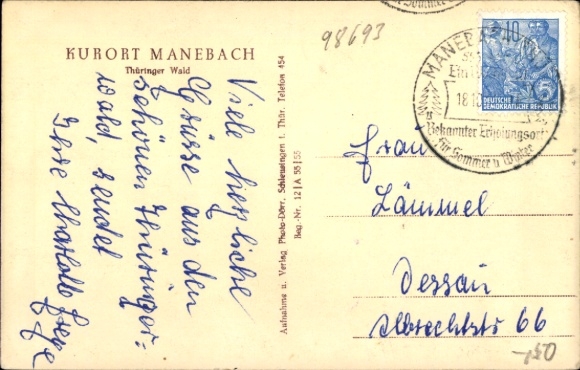 KURORT MANEBACH
Thüringer Wald
Viele herzliche
Grüsse aus den
schönen Thüringer=
wald, sendet
Ihre Charlotte
Aufnahme u. Verlag Photo-Dörr, Schleusingen i. Thür. Telefon 454
Reg.-Nr. 12 | A 55 | 55
98693
10
DEUTSCHE
DEMOKRATISCHE REPUBLIK
MANEBACH
18.10
Bekannter Erholungsort
für Sommer u. Winter
Frau
Lämmel
Dessau
Albrechtstr 66